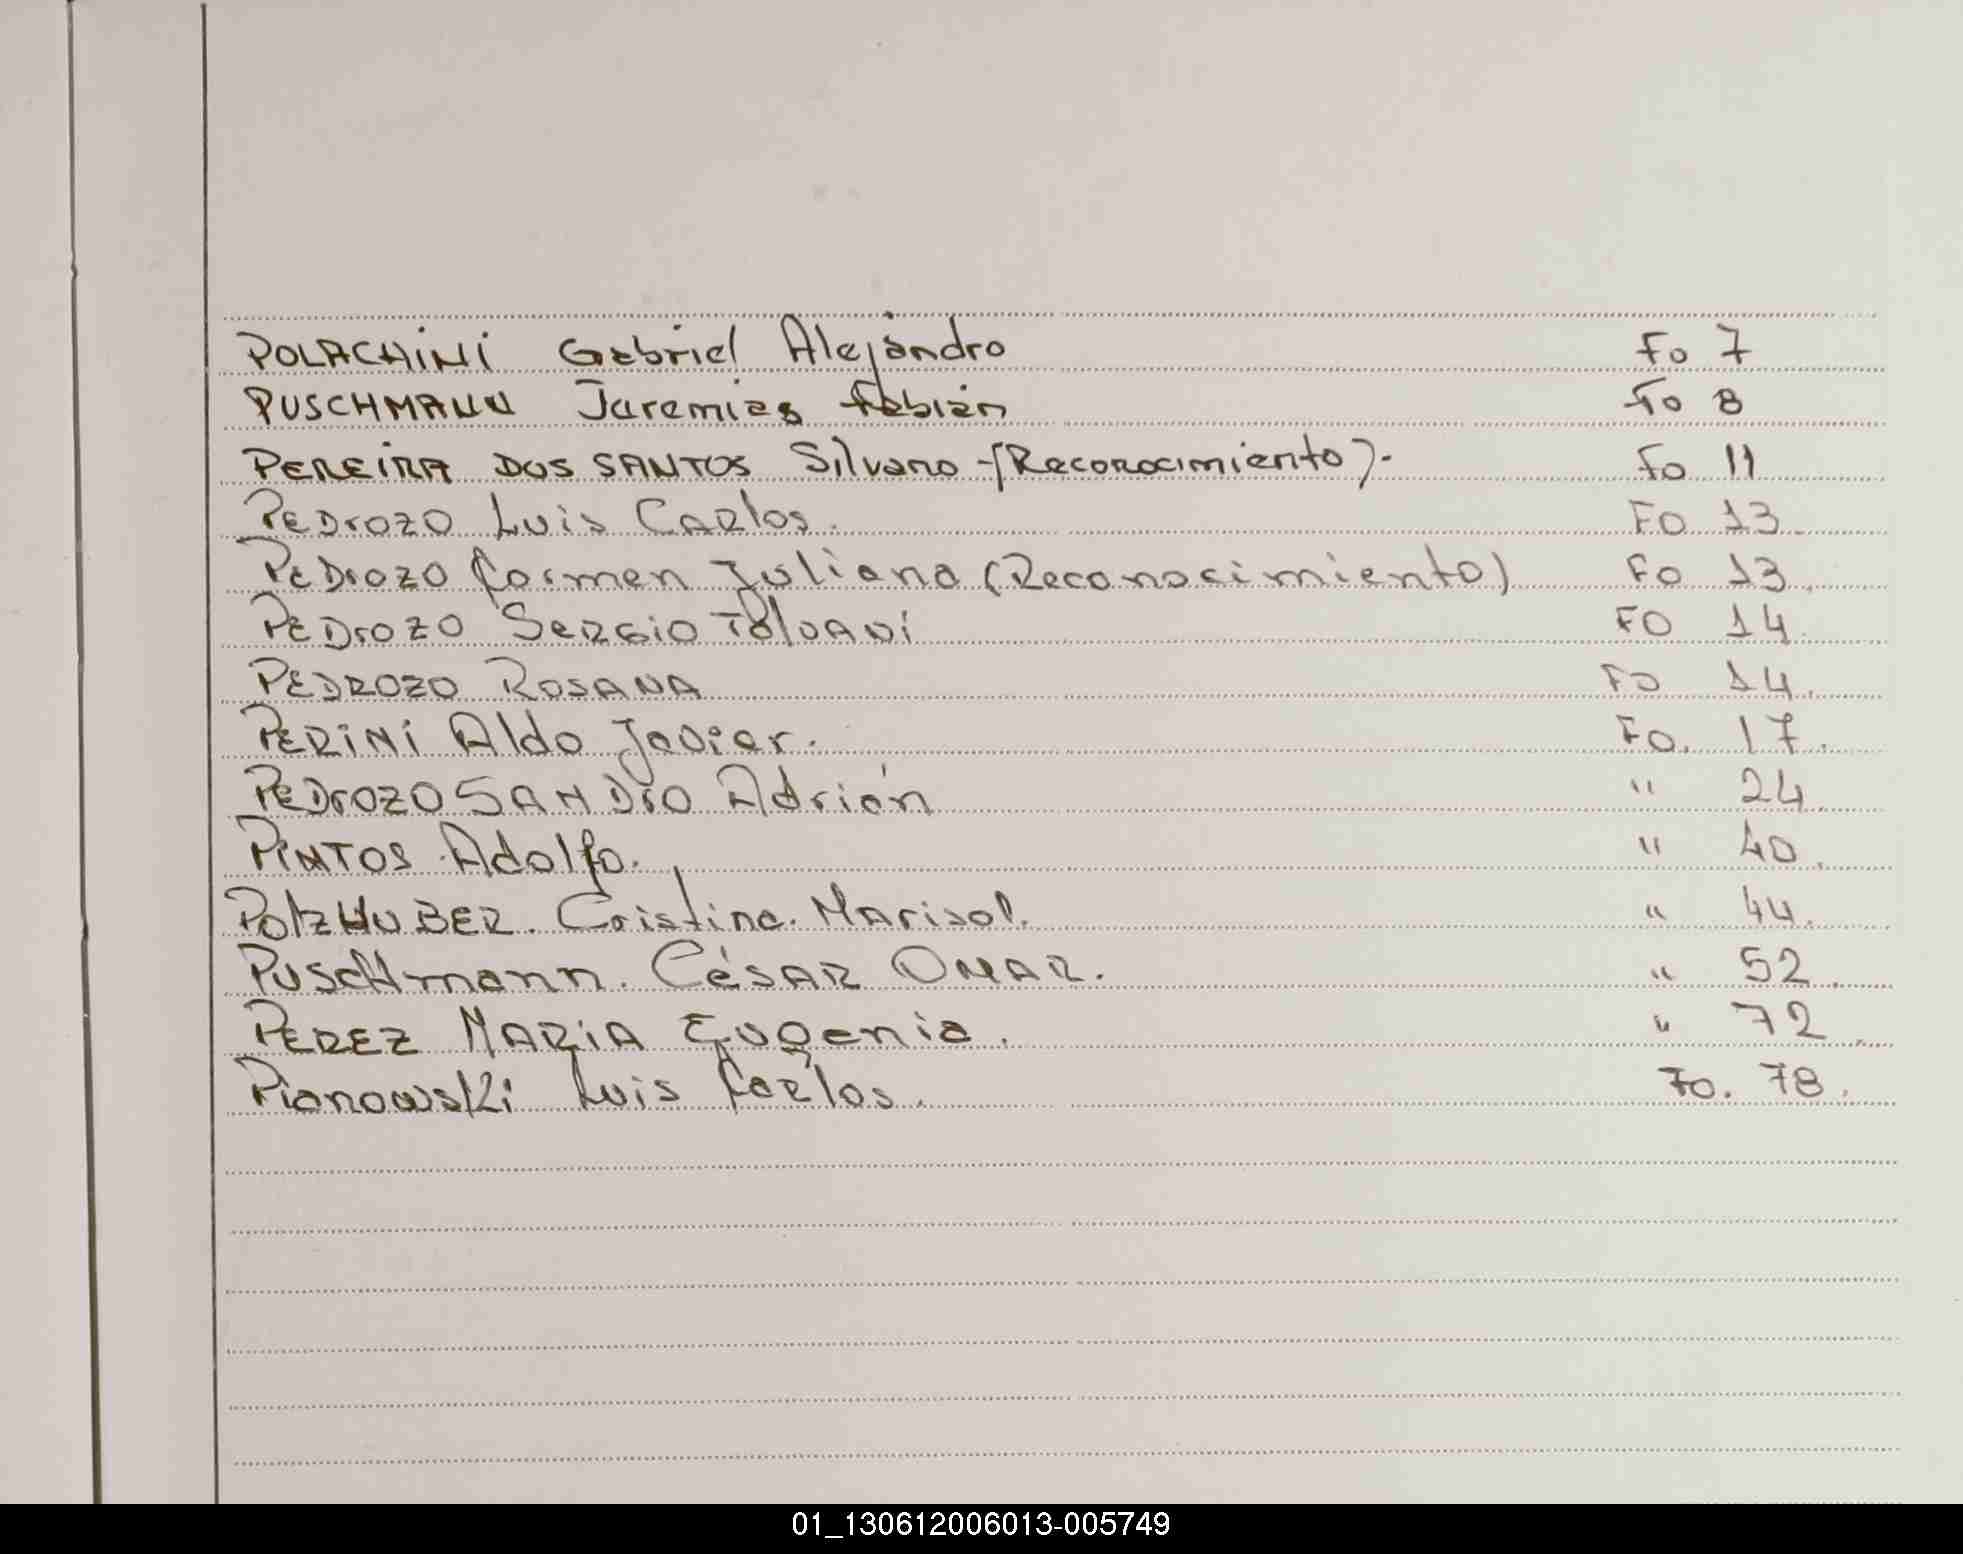 POLACHINI Gabriel Alejandro Fo 7
PUSCHMANN Jeremias Fabián Fo 8
PEREIRA DOS SANTOS Silvano -(Reconocimiento).- Fo 11
PEDrozo Luis CARlos. FO 13
PEDrozo Carmen Juliana (Reconocimiento) Fo 13.
PEDrozo SERGio FO 14
PEDROZO ROSANA FO 14.
PERiNi Aldo Javier. Fo. 17.
PEDrozo SANDro Adrián " 24.
PiNTOS Adolfo. " 40.
PotzHUBER. Cristina. MARisol. " 44.
PUSCHmann. CÉSAR OMAR. " 52.
PEREZ MARiA Eugenia. " 72.
Pianowski Luis Carlos. Fo. 78.
01_130612006013-005749